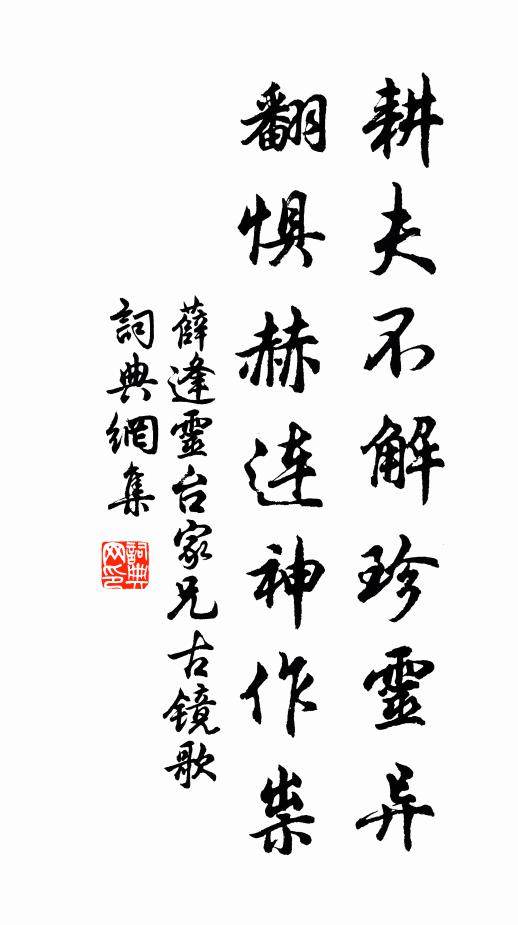 耕夫不解珍靈异
翻惧赫連神作祟
薛逢靈台家兄古鏡歌
詞典網集
詞典网印